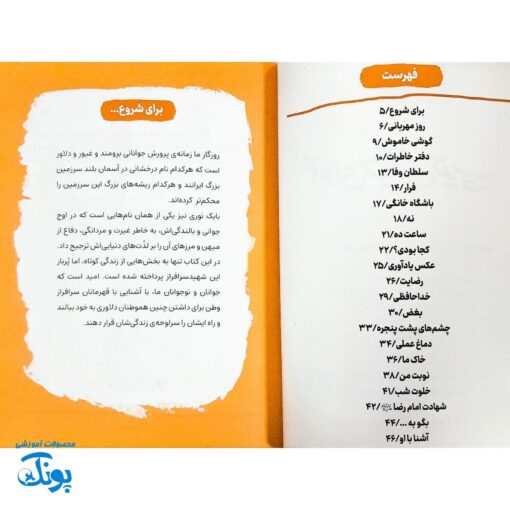 فهرست
برای شروع/۵
روز مهربانی/۶
گوشی خاموش/۹
دفتر خاطرات/۱۰
سلطان وفا/۱۳
فرار/۱۴
باشگاه خانگی/۱۷
نه/۱۸
ساعت ده/۲۱
کجا بودی؟/۲۲
عکس یادآوری/۲۵
رضایت/۲۶
خداحافظی/۲۹
بغض/۳۰
چشم‌های پشت پنجره/۳۳
دماغ عملی/۳۴
خاک ما/۳۶
نوبت من/۳۸
خلوت شب/۴۱
شهادت امام رضا/۴۲
بگو به .../۴۴
آشنا با او/۴۶
برای شروع...
روزگار ما زمانه‌ی پرورش جوانانی برومند و غیور و دلاور
است که هرکدام نام درخشانی در آسمان بلند سرزمین
بزرگ ایرانند و هرکدام ریشه‌های بزرگ این سرزمین را
محکم‌تر کرده‌اند.
بابک نوری نیز یکی از همان نام‌هایی است که در اوج
جوانی و بالندگی‌اش، به خاطر غیرت و مردانگی، دفاع از
میهن و مرزهای آن را بر لذّت‌های دنیایی‌اش ترجیح داد.
در این کتاب تنها به بخش‌هایی از زندگی کوتاه، اما پُربار
این شهید سرافراز پرداخته شده است. امید است که
جوانان و نوجوانان ما، با آشنایی با قهرمانان سرافراز
وطن برای داشتن چنین هموطنان دلاوری به خود ببالند
و راه ایشان را سرلوحه‌ی زندگی‌شان قرار دهند.
محصولات آموزشی
پونک